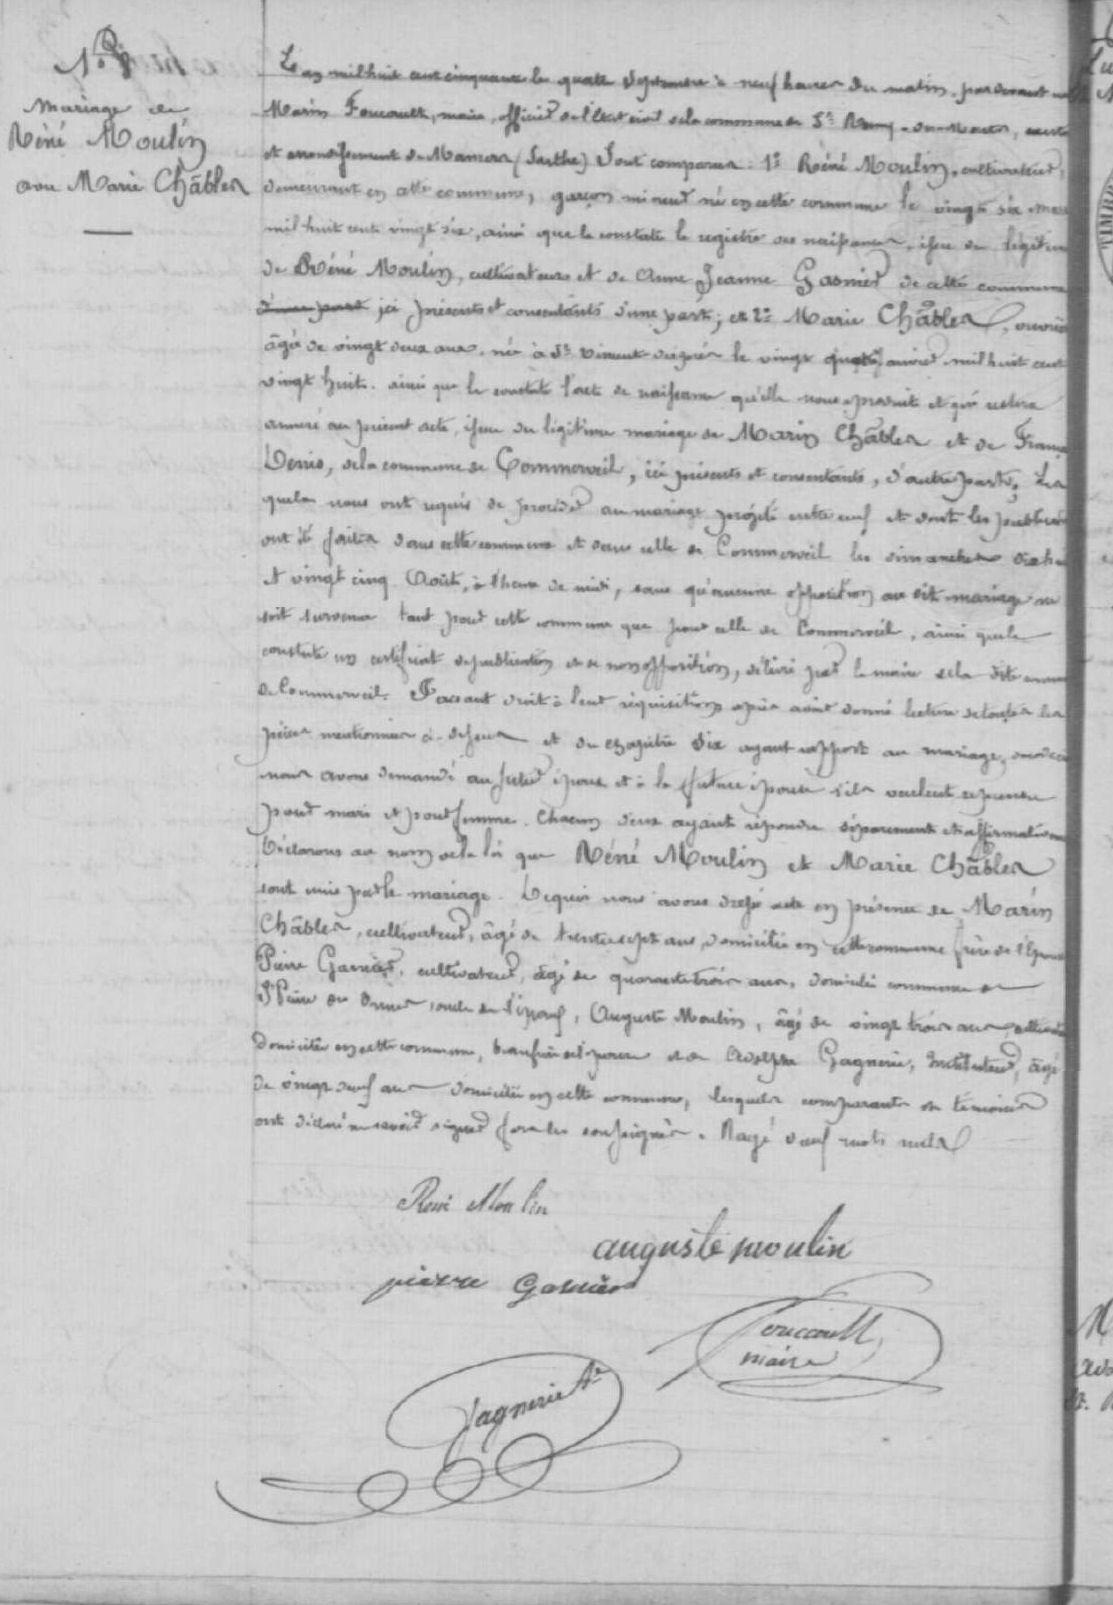 N° 8
Mariage de
Réné Moulin
avec Marie Châbles
L'an mil huit cent cinquante le quatre Septembre à neuf heures du matin, par devant nous
Marin Foucault, maire, officier de l'état civil de la commune de St Remy-du-, canton
et arrondissement de Mamers (Sarthe) Sont comparus: 1° Réné Moulin, cultivateur,
demeurant en cette commune, garçon mineur né en cette commune le vingt six mars
mil huit cent vingt six, ainsi que le constate le registre des naissances, issu du légitime
de Réné Moulin, cultivateurs et de Anne Jeanne Gasnier de cette commune
d'une part ici présents et consentants d'une part; et 2° Marie Châbles, ouvrière
âgée de vingt deux ans, née à St Vincent le vingt quatre janvier mil huit cent
vingt huit. ainsi que le constate l'acte de naissance qu'elle nous a produit et qui restera
annexé au présent acte, issue du légitime mariage de Marin Châbles et de Franç
Denis, de la commune de Commerveil, ici présents et consentants, d'autre part; Les
quels nous ont requis de procéder au mariage projeté entre eux et dont les publications
ont été faites dans cette commune et dans celle de Commerveil les dimanches dix huit
et vingt cinq Août, à l'heure de midi, sans qu'aucune opposition au dit mariage ne
soit survenue tant pour cette commune que pour celle de Commerveil, ainsi que le
constate un certificat de publication et de non opposition, délivré par le maire de la dite commune
de Commerveil. Faisant droit à leur réquisition après avoir donné lecture de toutes les
pièces mentionnées ci-dessus et du chapitre six ayant rapport au mariage,
nous avons demandé au futur époux et à la future épouse s'ils veulent se prendre
pour mari et pour femme. Chacun d'eux ayant répondu séparement et affirmativement
Déclarons au nom de la loi que Réné Moulin et Marie Châbles
sont unis par le mariage. De quoi nous avons dressé acte en présence de Marin
Châbles, cultivateur, âgé de trente sept ans, domicilié en cette commune frère de l'épouse
Pierre Gasnier, cultivateur, âgé de quarante trois ans, domicilié commune de
St Pierre des Ormes, oncle de l'époux, Auguste Moulin, âgé de vingt trois ans
domicilié en cette commune, beaufrère de l'épouse et de Adolphe Gagnerie, Instituteur, âgé
de vingt neuf ans domicilié en cette commune, lesquels comparants et témoins
ont déclaré ne savoir signer fors les soussignés. Rayé deux mots nuls
René Moulin
auguste moulin
pierre Gasnier
Foucault
maire
Gagnerie Ae